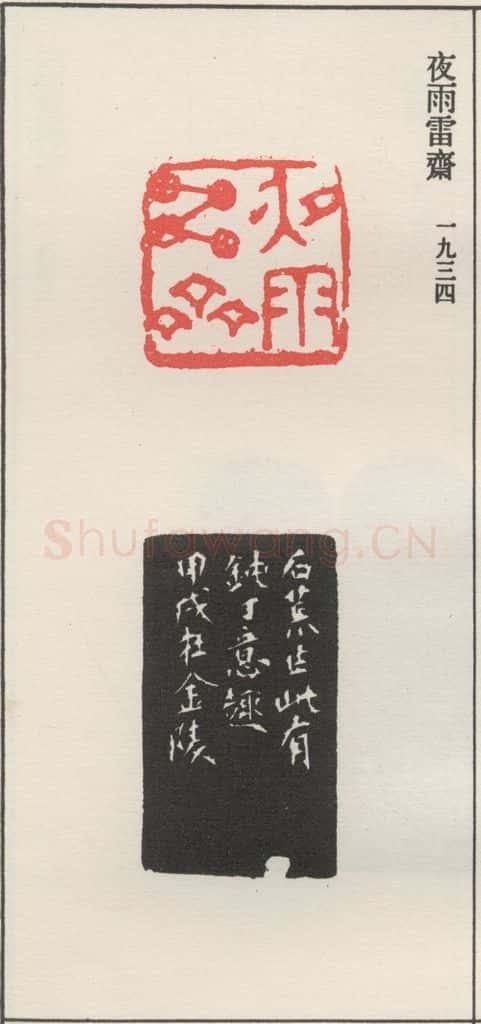 夜雨雷齋 一九三四
夜雨
雷齋
石荒作此有
鈍丁意趣
甲戌在金陵
Shufawang.CN